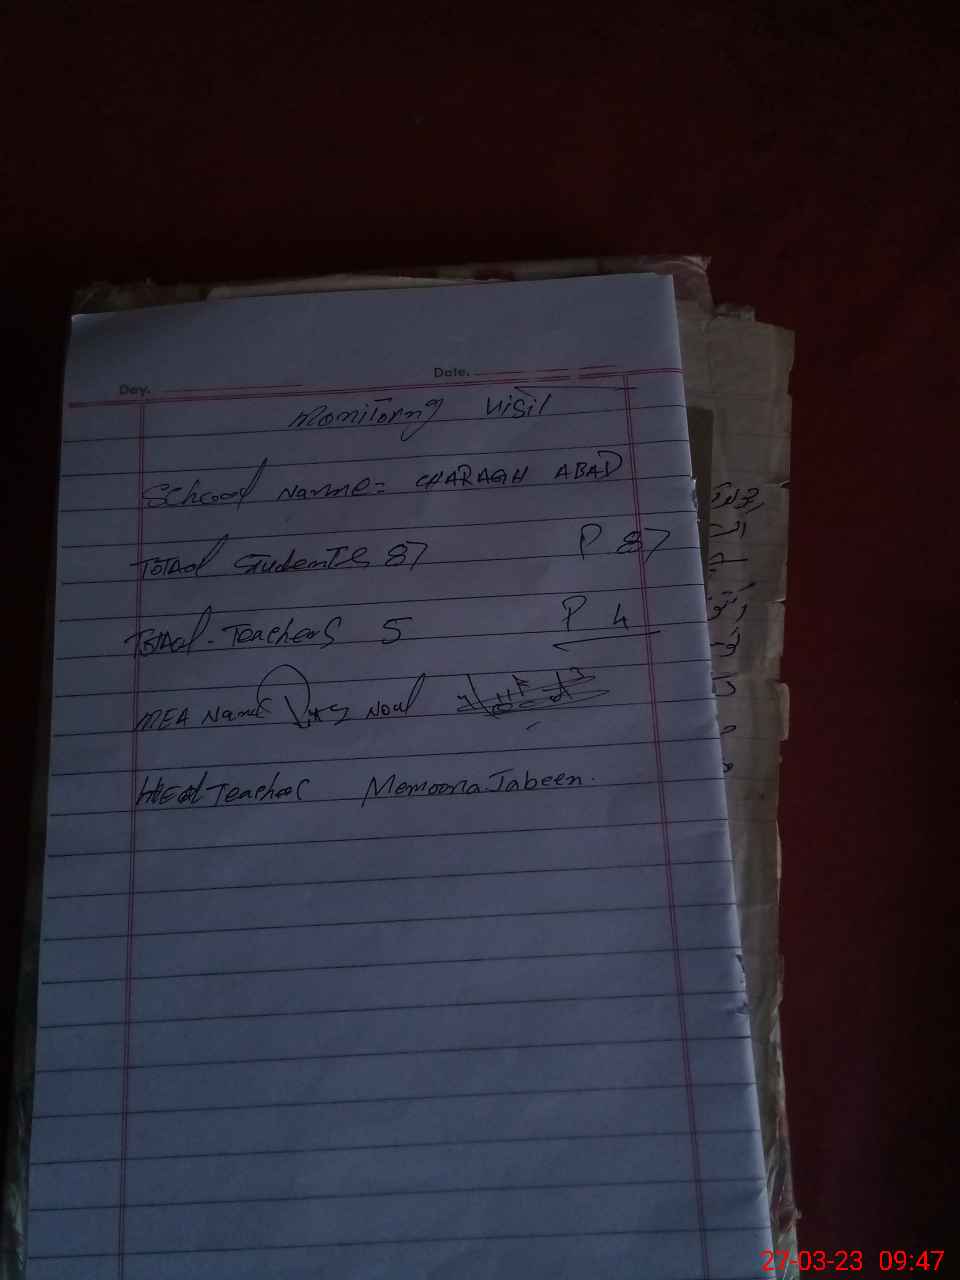 Day.
Date.
Monitorng Visit
School Name= CHARAGH ABAD
Total Students 87 P 87
Total Teachers 5 P 4
MEA Name
Head Teacher Memoona Jabeen.
27-03-23 09:47